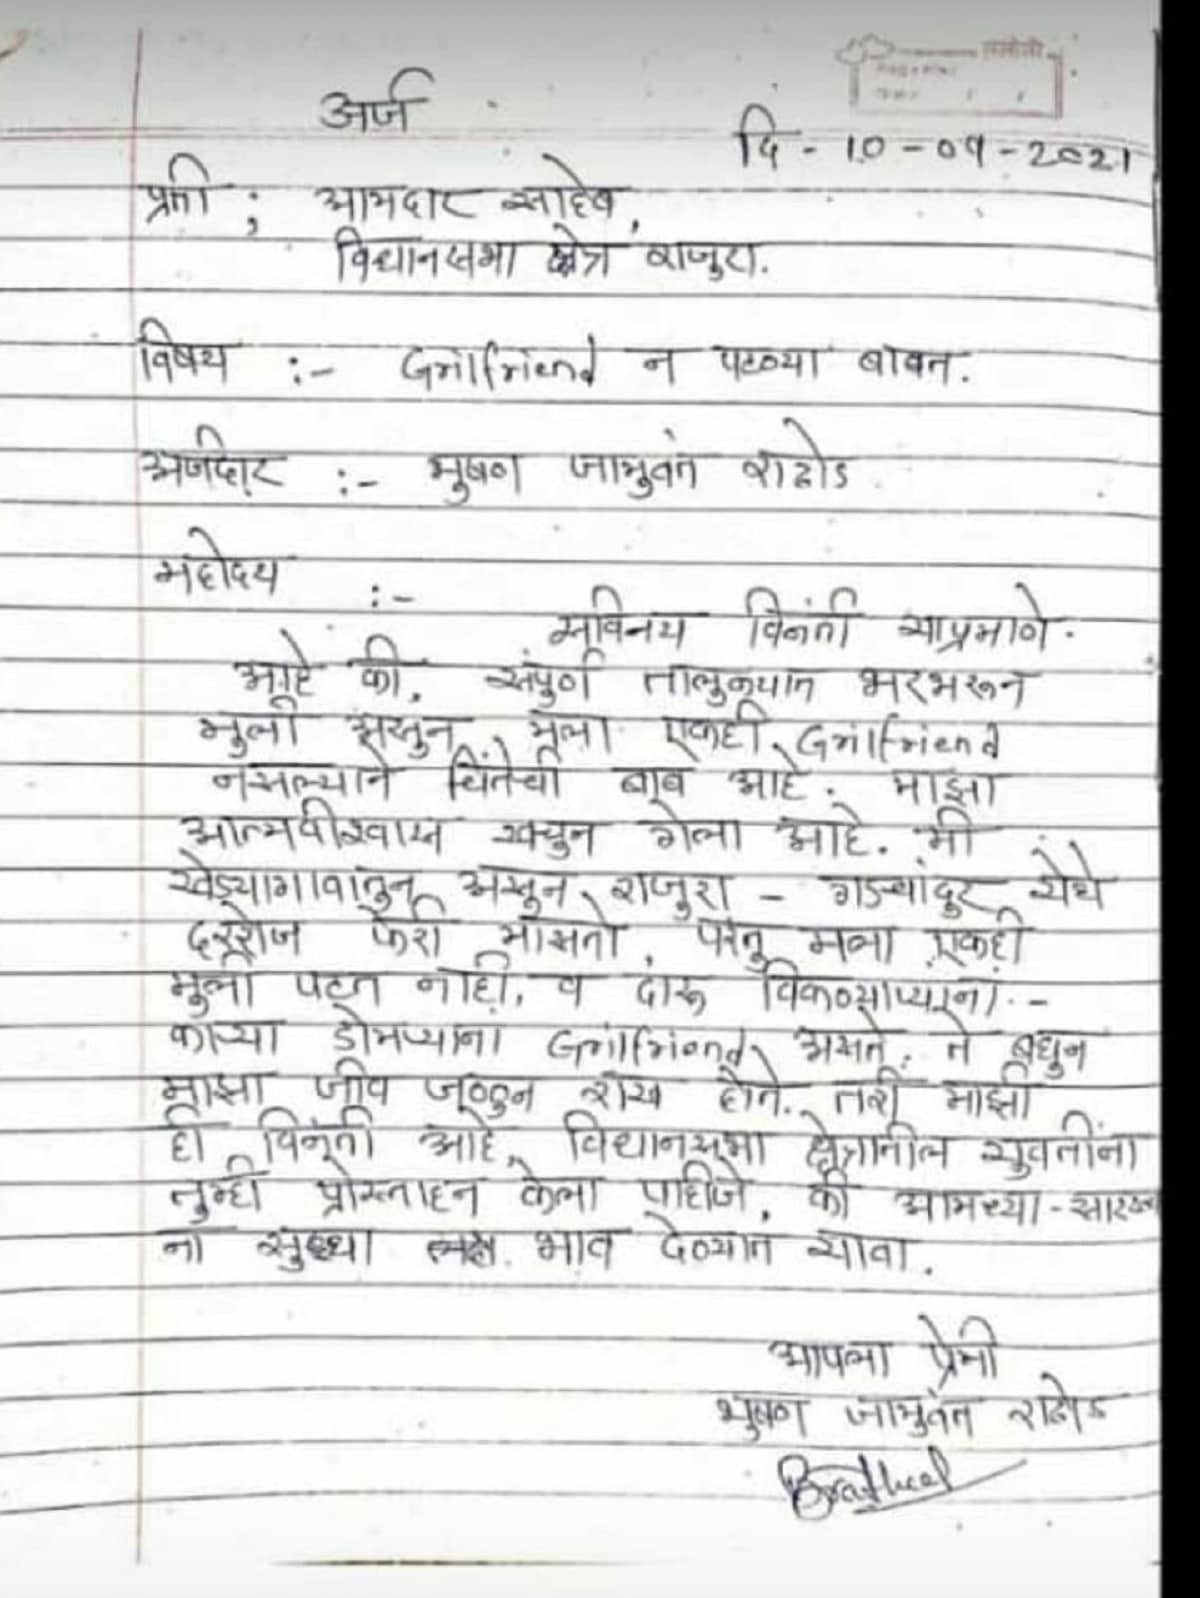 अर्ज
दि - 10 - 09 - 2021
प्रती ; आमदार साहेब,
विधानसभा क्षेत्र राजुरा.
विषय :- Grilfriend न पटण्या बाबत.
अर्जदार :- भुषण जामुवंत राठोड
महोदय :-
सविनय विनंती याप्रमाणे.
आहे की, संपुर्ण तालुक्यात भरभरून
मुली असुन, मला एकही Grilfriend
नसल्याने चिंतेची बाब आहे. माझा
आत्मवीश्वास खचुन गेला आहे. मी
खेड्यागावातुन असुन, राजुरा - गडचांदुर येथे
दररोज फेरी मारतो, परंतु मला एकही
मुली पटत नाही, व दारू विकण्याऱ्यांना -
काऱ्या डोमऱ्यांना Grilfriend असते. ते बघुन
माझा जीव जळुन राख होते. तरी माझी
ही विनंती आहे, विधानसभा क्षेत्रातील युवतींना
तुम्ही प्रोत्साहन केला पाहीजे, की आमच्या - सारख्या
ना सुध्धा भाव देण्यात यावा.
आपला प्रेमी
भुषण जामुवंत राठोड